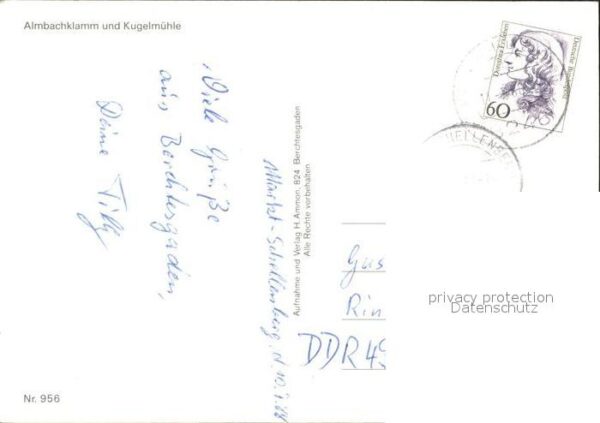 Almbachklamm und Kugelmühle
Viele Grüße
aus Berchtesgaden,
Deine Tilly
Markt-Schellenberg, d. 10.
Aufnahme und Verlag H. Ammon, 824 Berchtesgaden
Alle Rechte vorbehalten
Dorothea Erxleben
Deutsche Bundespost
60
HELLENBE
Gus
Rin
DDR 4
privacy protection
Datenschutz
Nr. 956